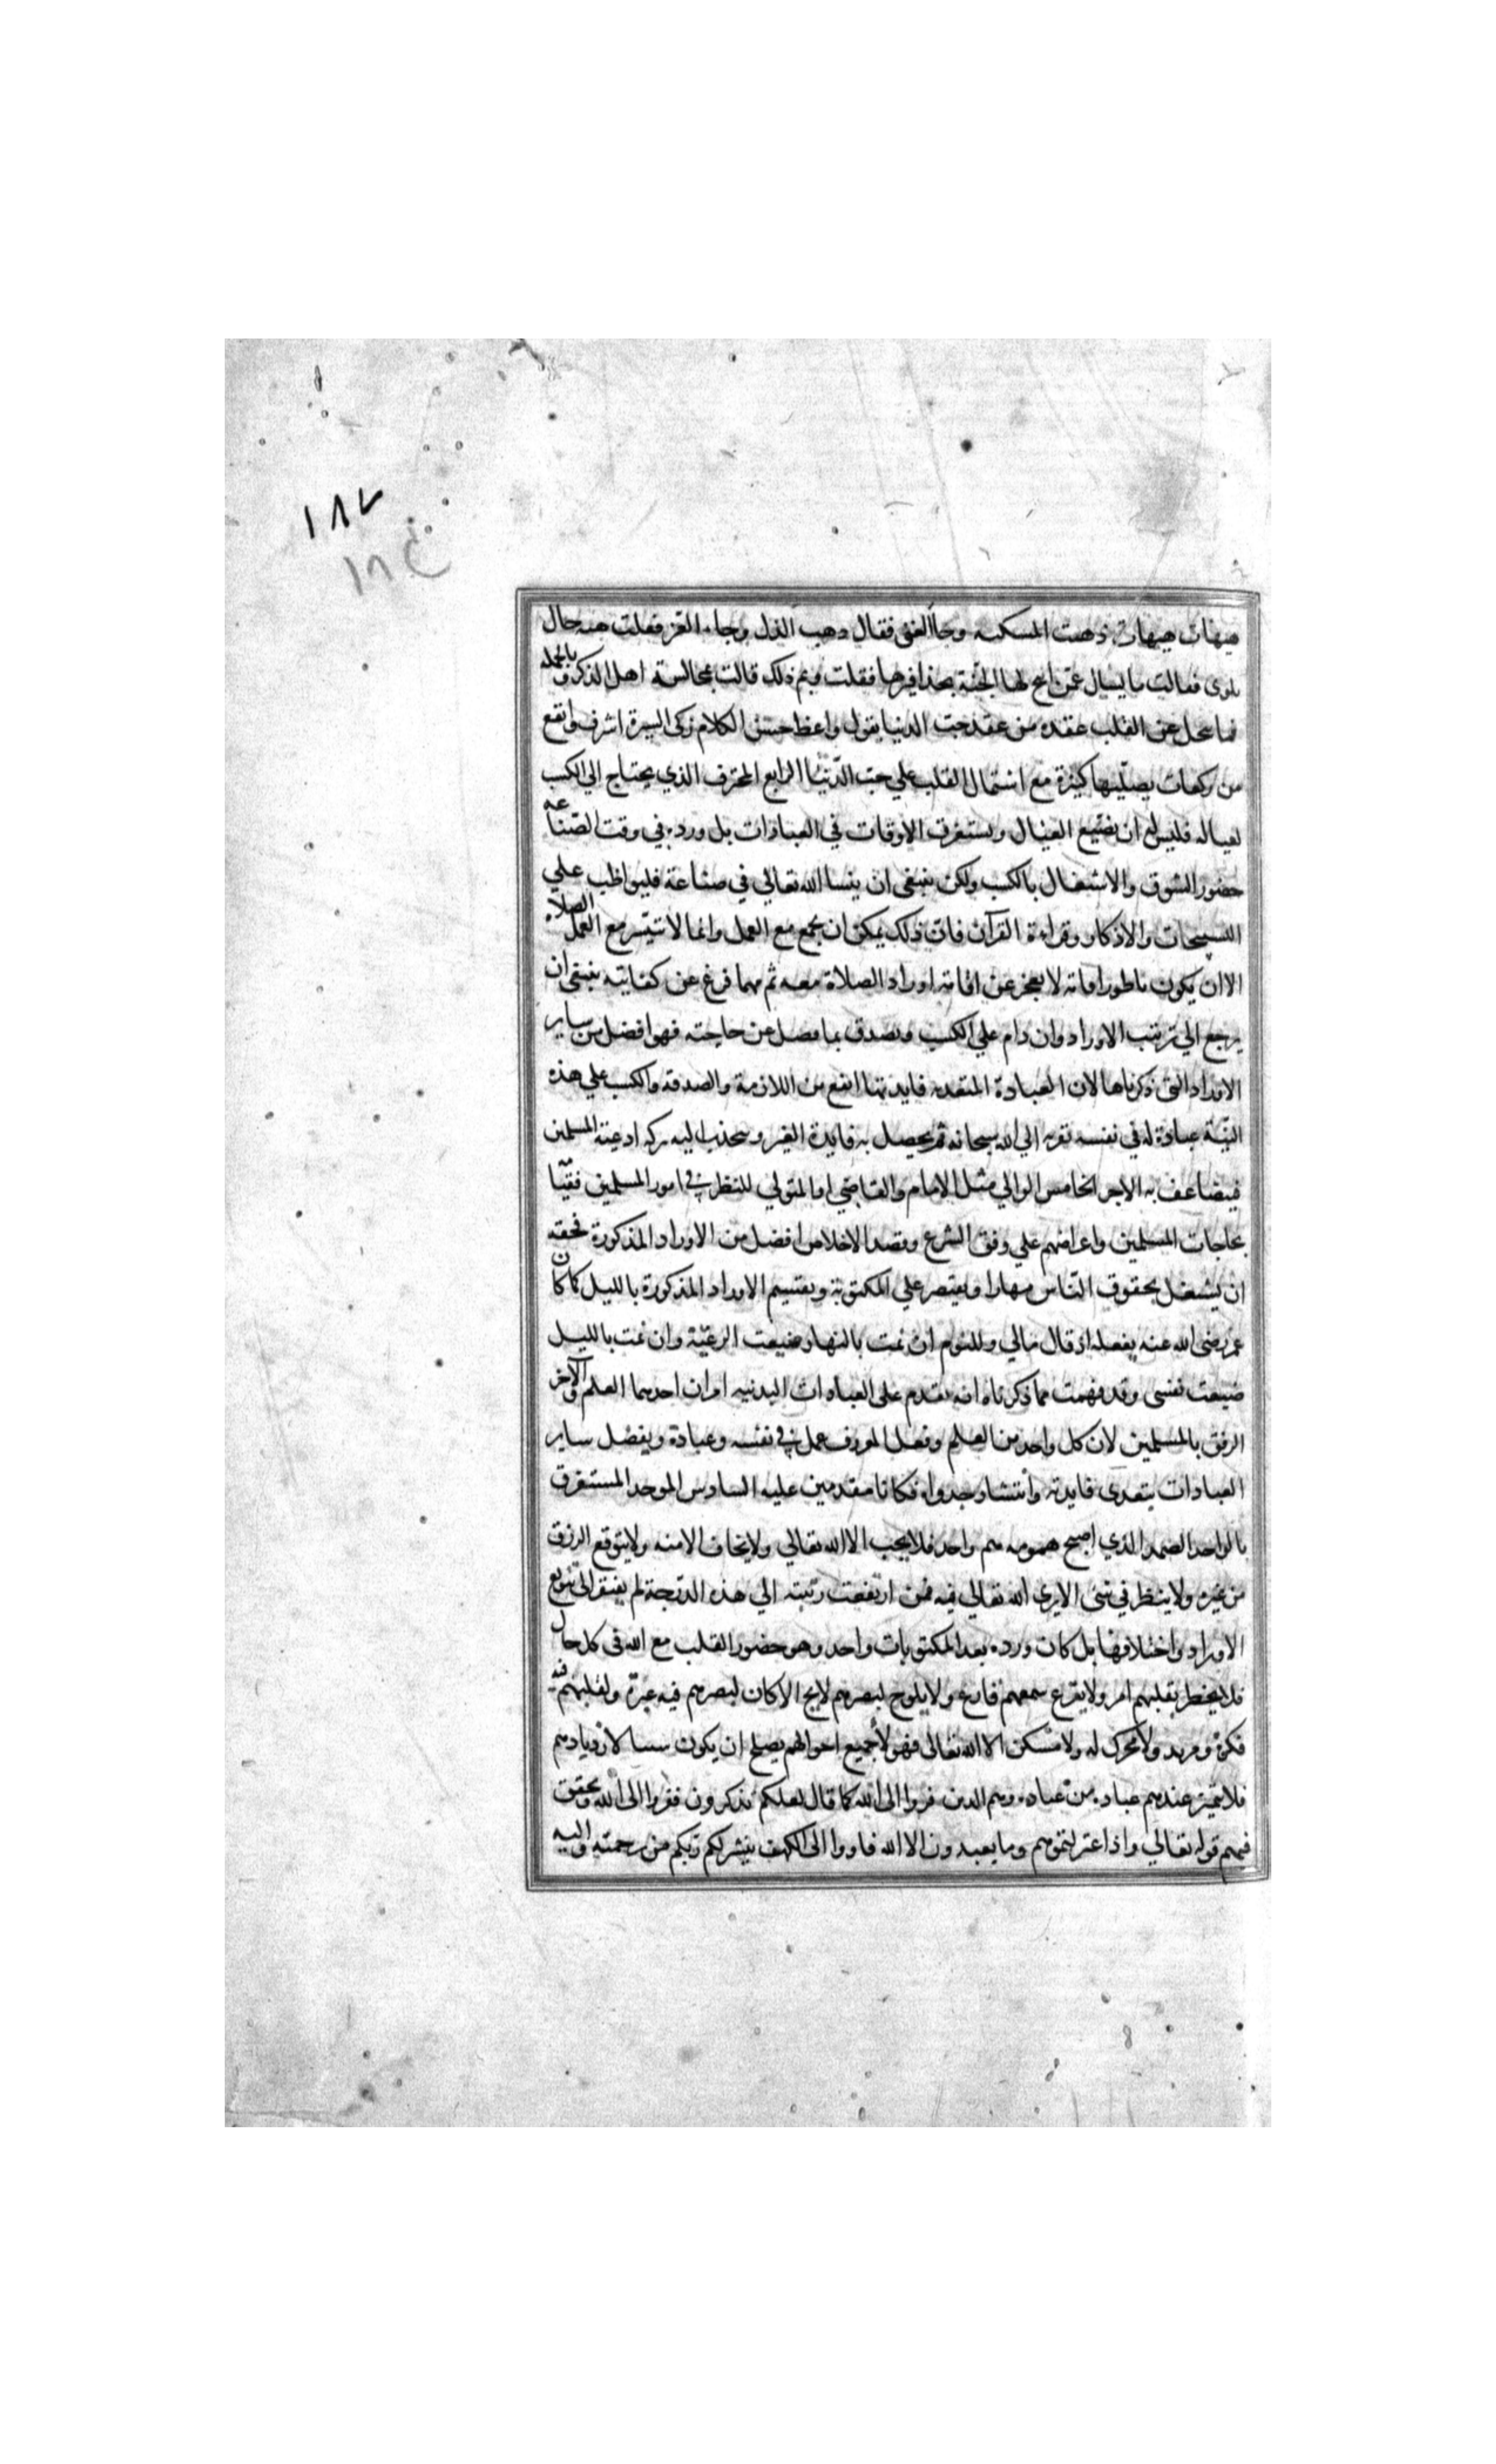 ١٨٧
١٨٤
هيهات هيهات ذهبت المسكنة وجاء الغنى فقال ذهب الذل وجاء العز فقلت هيه حال
بلوى فقالت ما يسال عمن ابيح لها الجنة بحذافيرها فقلت وبم ذلك قالت بمجالسة اهل الذكر وبالجملة
فما ينحل عن القلب عقده من عقد حب الدنيا بقول واعظ حسن الكلام زكى السيرة اشرف وانفع
من ركعات يصليها كثيرة مع اشتمال القلب علي حب الدنيا الرابع المحترف الذي يحتاج الي الكسب
لعياله فليس له ان يضيع العيال ويستغرق الاوقات في العبادات بل ورده في وقت الصناعة
حضور السوق والاشتغال بالكسب ولكن ينبغى ان ينسا الله تعالي في صناعة فليواظب علي
التسبيحات والاذكار وقراءة القرآن فان ذلك يمكن ان يجمع مع العمل وانما لا تتيسر مع العمل الصلاة
الا ان يكون ناطورا فانه لا يعجز عن اقامة اوراد الصلاة معه ثم مهما فرغ عن كفايته ينبغي ان
يرجع الي ترتيب الاوراد وان دام علي الكسب وتصدق بما فضل عن حاجته فهو افضل من ساير
الاوراد التى ذكرناها لان العبادة المتعديه فايدتها انفع من اللازمة والصدقه والكسب علي هذه
النية عبادة له في نفسه تقربه الي الله سبحانه ثم يحصل به فايدة الغير وينجذب اليه بركه ادعية المسلمين
فيضاعف به الاجر الخامس الوالي مثل الامام والقاضي او المتولي للنظر في امور المسلمين فقيا
بحاجات المسلمين واغراضهم علي وفق الشرع وقصد الاخلاص افضل من الاوراد المذكورة فحقه
ان يشتغل بحقوق الناس نهارا ويقتصر علي المكتوبة ويقتسيم الاوراد المذكورة بالليل كما كان
عمر رضى الله عنه يفعله اذ قال مالي وللنوم ان نمت بالنهار ضيعت الرعية وان نمت بالليل
ضيعت نفسى وقد فهمت مما ذكرناه انه يقدم على العبادات البدنيه امران احدهما العلم والآخر
الرفق بالمسلمين لان كل واحد من العلم وفعل المعروف عمل في نفسه وعبادة ويفضل ساير
العبادات بتعدى فايدته وانتشار جدواه فكانا مقدمين عليه السادس الموحد المستغرق
بالواحد الصمد الذي اصبح همومه هم واحد فلا يحب الا الله تعالي ولا يخاف الا منه ولا يتوقع الرزق
من غيره ولا ينظر في شئ الا يرى الله تعالي فيه فمن ارتفعت رتبته الي هذه الدرجة لم يفتقر الى تنويع
الاوراد واختلافها بل كان ورده بعد المكتوبات واحد وهو حضور القلب مع الله فى كل حال
فلا يخطر بقلبهم امر ولا يقرع سمعهم قارع ولا يلوح لبصرهم لايح الا كان لبصرهم فيه عبرة ولقلبهم فيه
فكرة ومزيد ولا محرك له ولا مسكن الا الله تعالى فهولاء جميع احوالهم يصلح ان يكون سببا لازديادهم
فلا تتميز عندهم عباده من عباده وهم الذين فروا الى الله كما قال لعلكم تذكرون ففروا الى الله وتحقق
فيهم قوله تعالي واذا اعتزلتموهم وما يعبدون الا الله فاووا الى الكهف ينشر لكم ربكم من رحمته واليه